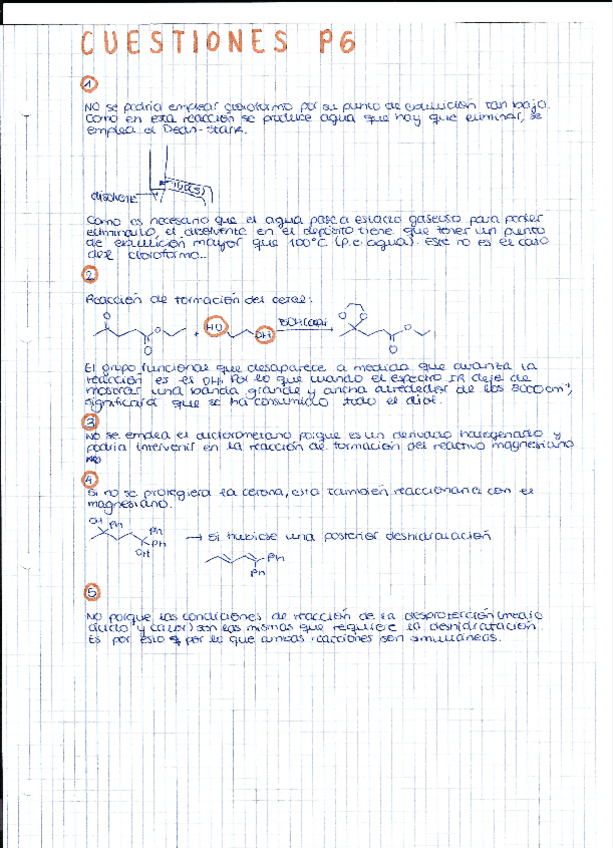 CUESTIONES P6
1
NO se podría emplear cloroformo por su punto de ebullición tan bajo.
Como en esta reacción se produce agua que hay que eliminar, se
emplea el Dean-Stark.
disolvente
Como es necesario que el agua pase a estado gaseoso para poder
eliminarlo, el disolvente en el depósito tiene que tener un punto
de ebullición mayor que 100°C (p.e agua). Este no es el caso
del cloroformo..
2
Reacción de formación del cetal:
O O O + HO OH O O O O
El grupo funcional que desaparece a medida que avanza la
reacción es el OH. Por lo que cuando el espectro IR deje de
mostrar una banda grande y ancha alrededor de los 3000cm⁻¹,
significará que se ha consumido todo el diol.
3
NO se emplea el diclorometano porque es un derivado halogenado y
podría intervenir en la reacción de formación del reactivo magnesiano
4
Si no se protegiera la cetona, esta también reaccionaría con el
magnesiano.
OH Ph Ph Ph OH → Si hubiese una posterior deshidratación
Ph Ph
5
NO porque las condiciones de reacción de la desprotección (medio
ácido y calor) son las mismas que requiere la deshidratación.
Es por esto por lo que ambas reacciones son simultáneas.